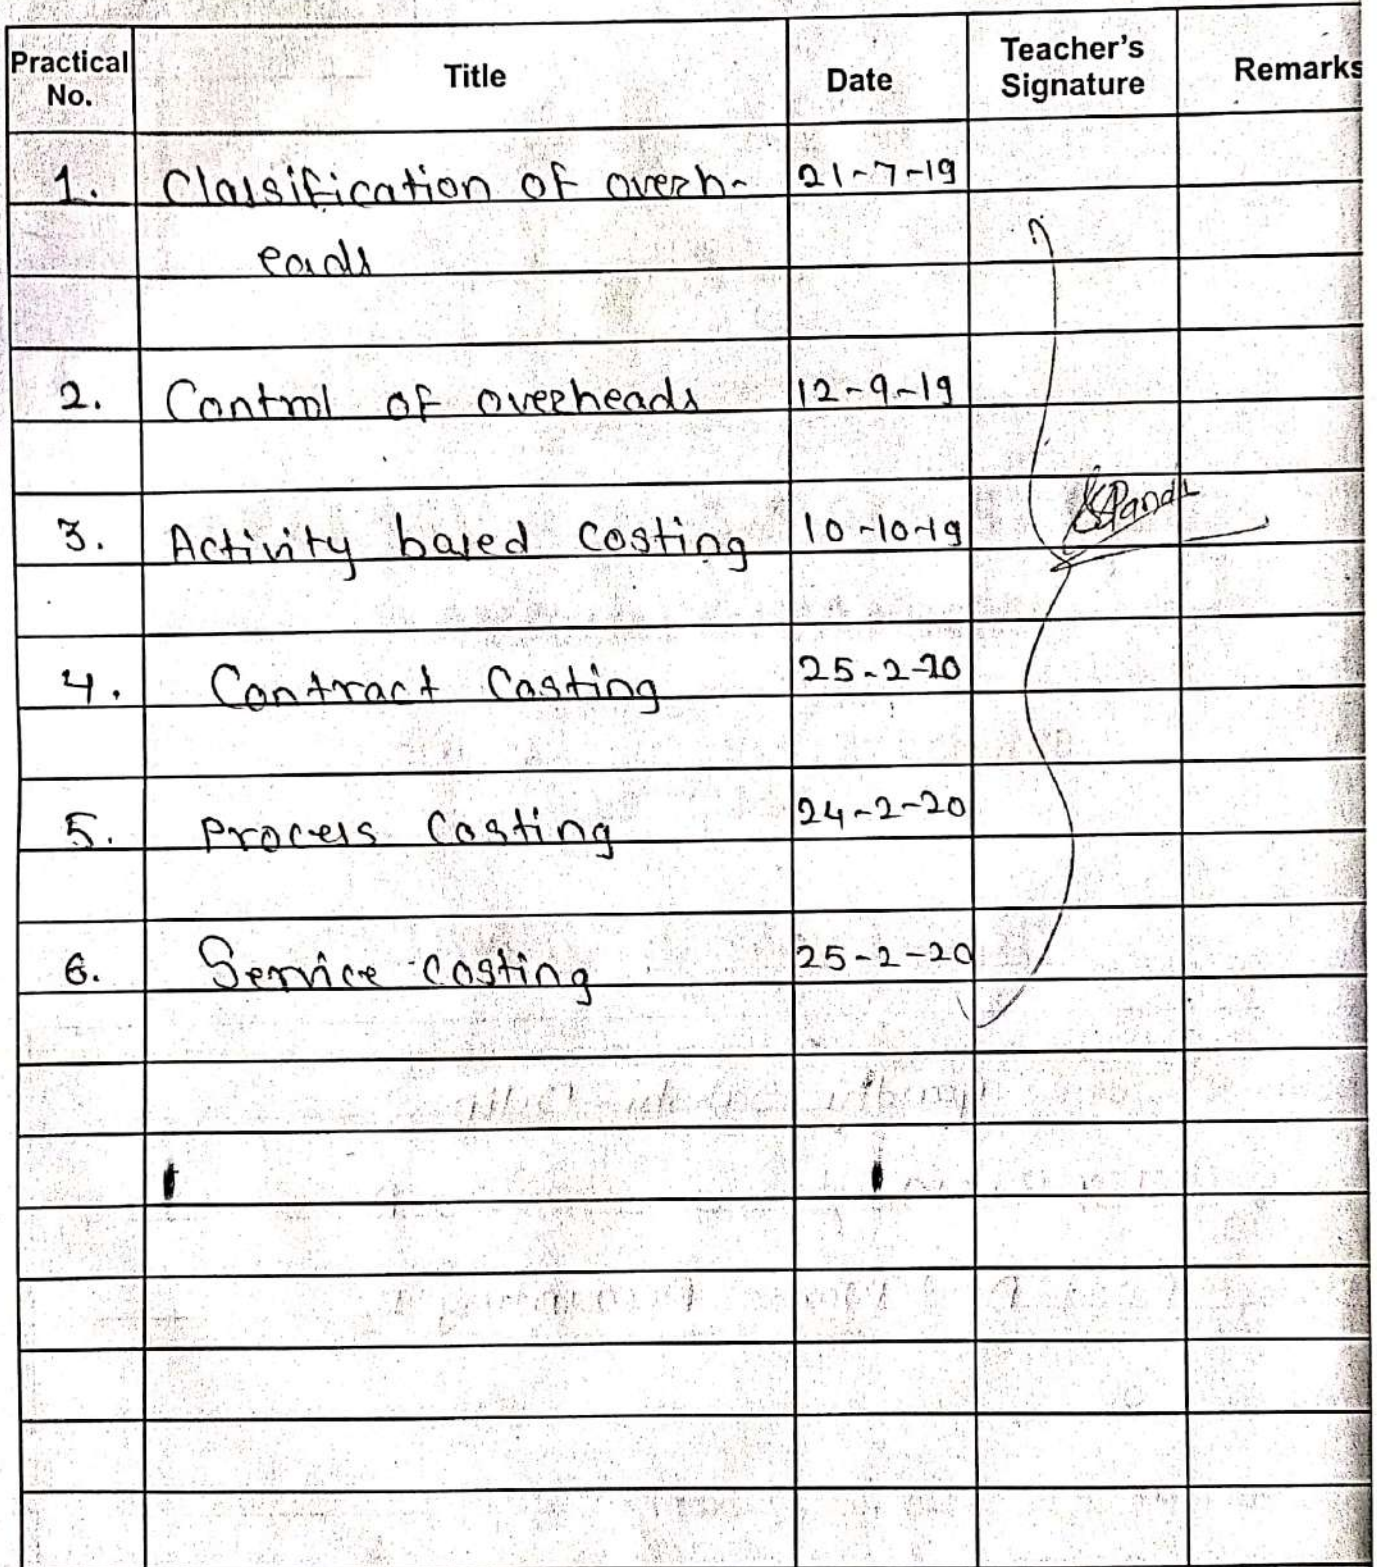 Practical No. Title Date Teacher's Signature Remarks
1. Classification of overh- 21-7-19
eads
2. Control of overheads 12-9-19
3. Activity based costing 10-10-19
4. Contract Costing 25-2-20
5. Process Costing 24-2-20
6. Service costing 25-2-20